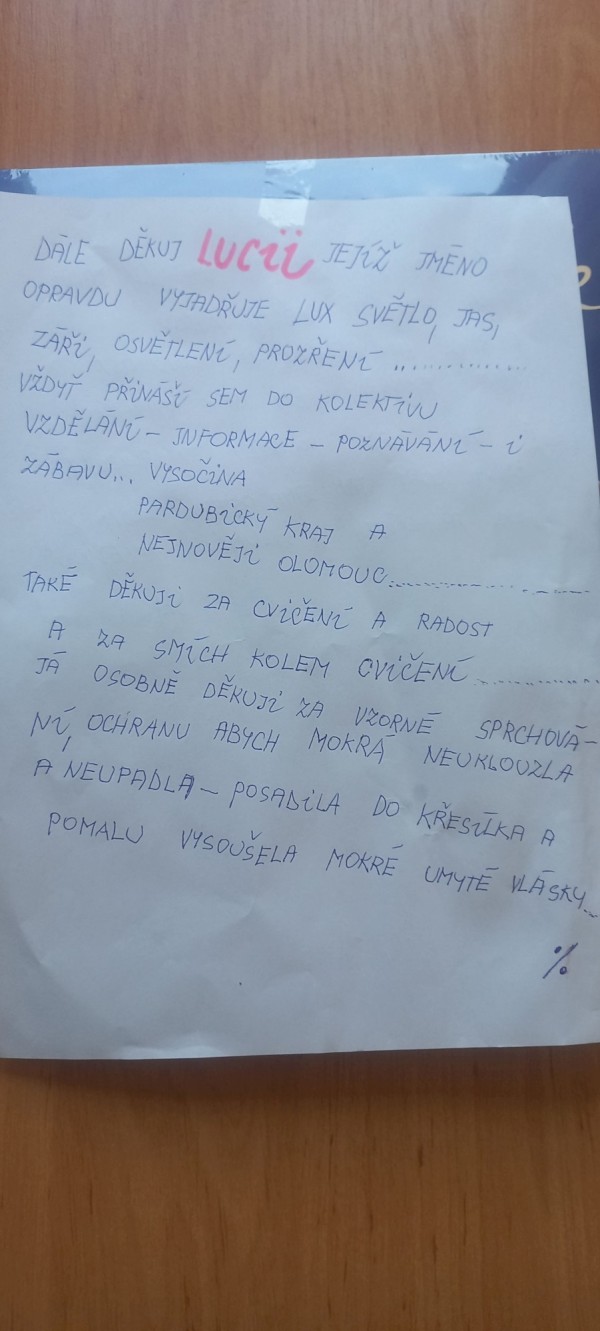 DÁLE DĚKUJ LUCII JEJÍŽ JMÉNO
OPRAVDU VYJADŘUJE LUX SVĚTLO, JAS,
ZÁŘI, OSVĚTLENÍ, PROZŘENÍ ..............
VŽDYŤ PŘINÁŠÍ SEM DO KOLEKTIVU
VZDĚLÁNÍ – INFORMACE – POZNÁVÁNÍ – i
ZÁBAVU... VYSOČINA
PARDUBICKÝ KRAJ A
NEJNOVĚJI OLOMOUC..............................
TAKÉ DĚKUJI ZA CVIČENÍ A RADOST
A ZA SMÍCH KOLEM CVIČENÍ..................
JÁ OSOBNĚ DĚKUJI ZA VZORNÉ SPRCHOVÁ–
NÍ, OCHRANU ABYCH MOKRÁ NEUKLOUZLA
A NEUPADLA – POSADILA DO KŘESÍLKA A
POMALU VYSOUŠELA MOKRÉ UMYTÉ VLÁSKY...
%